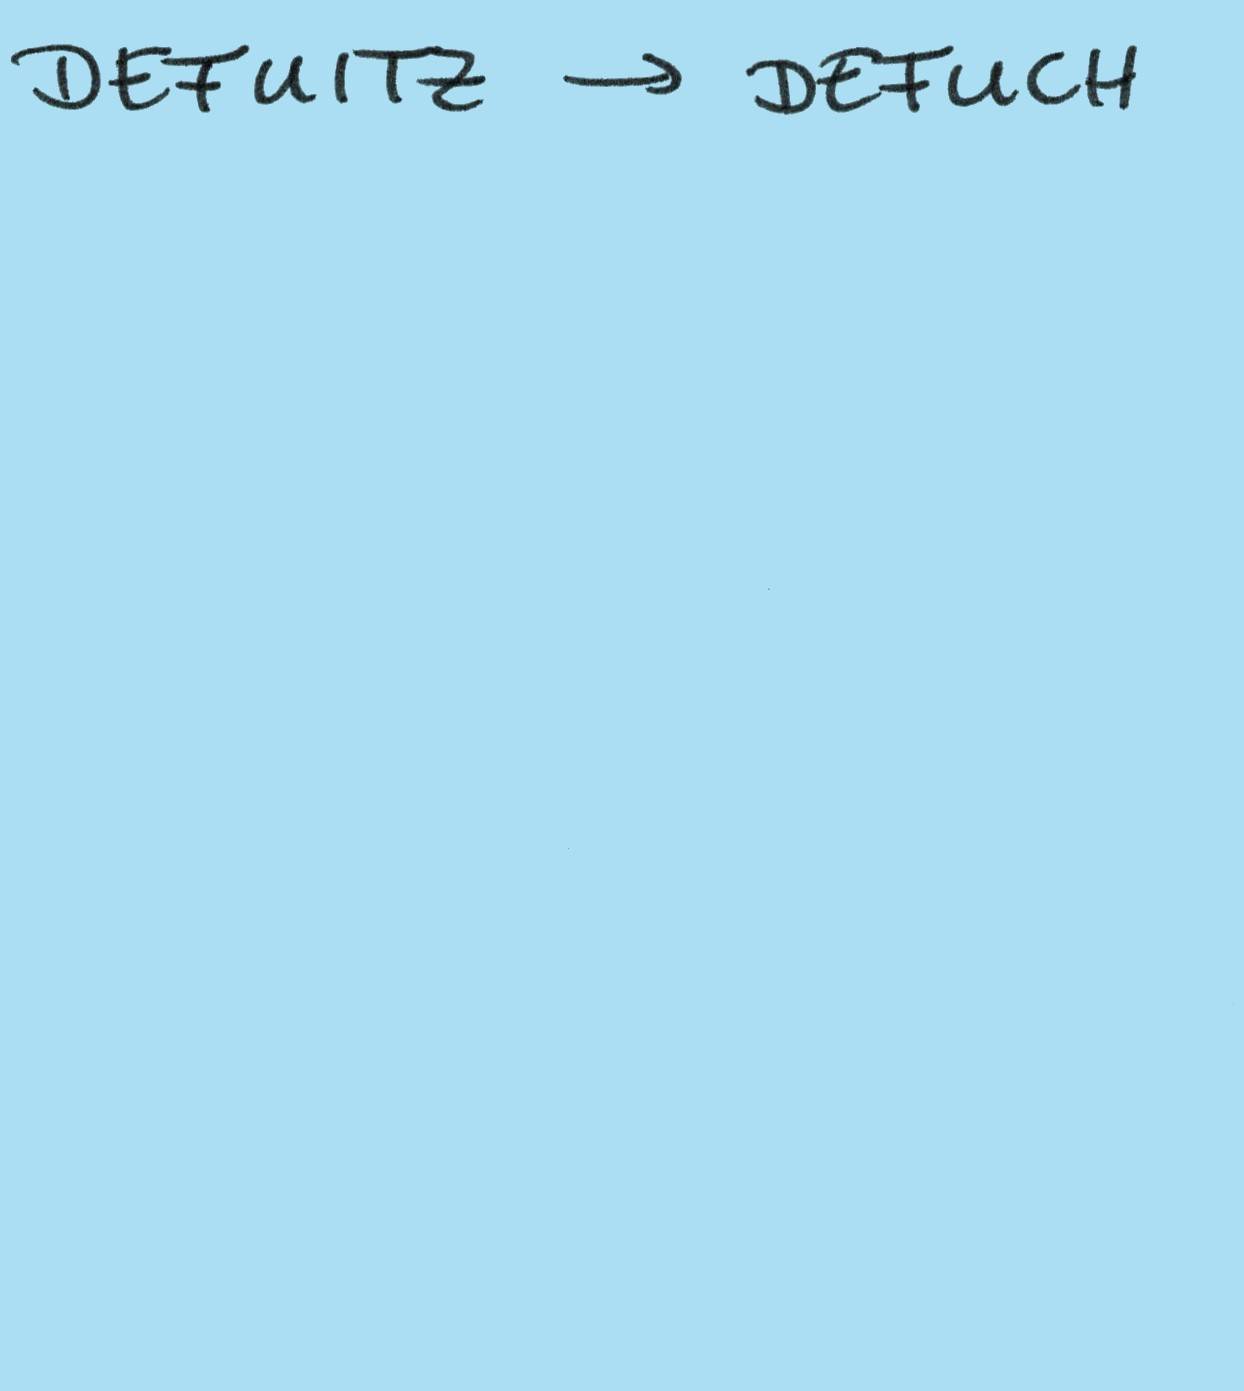 DEFUITZ → DEFUCH